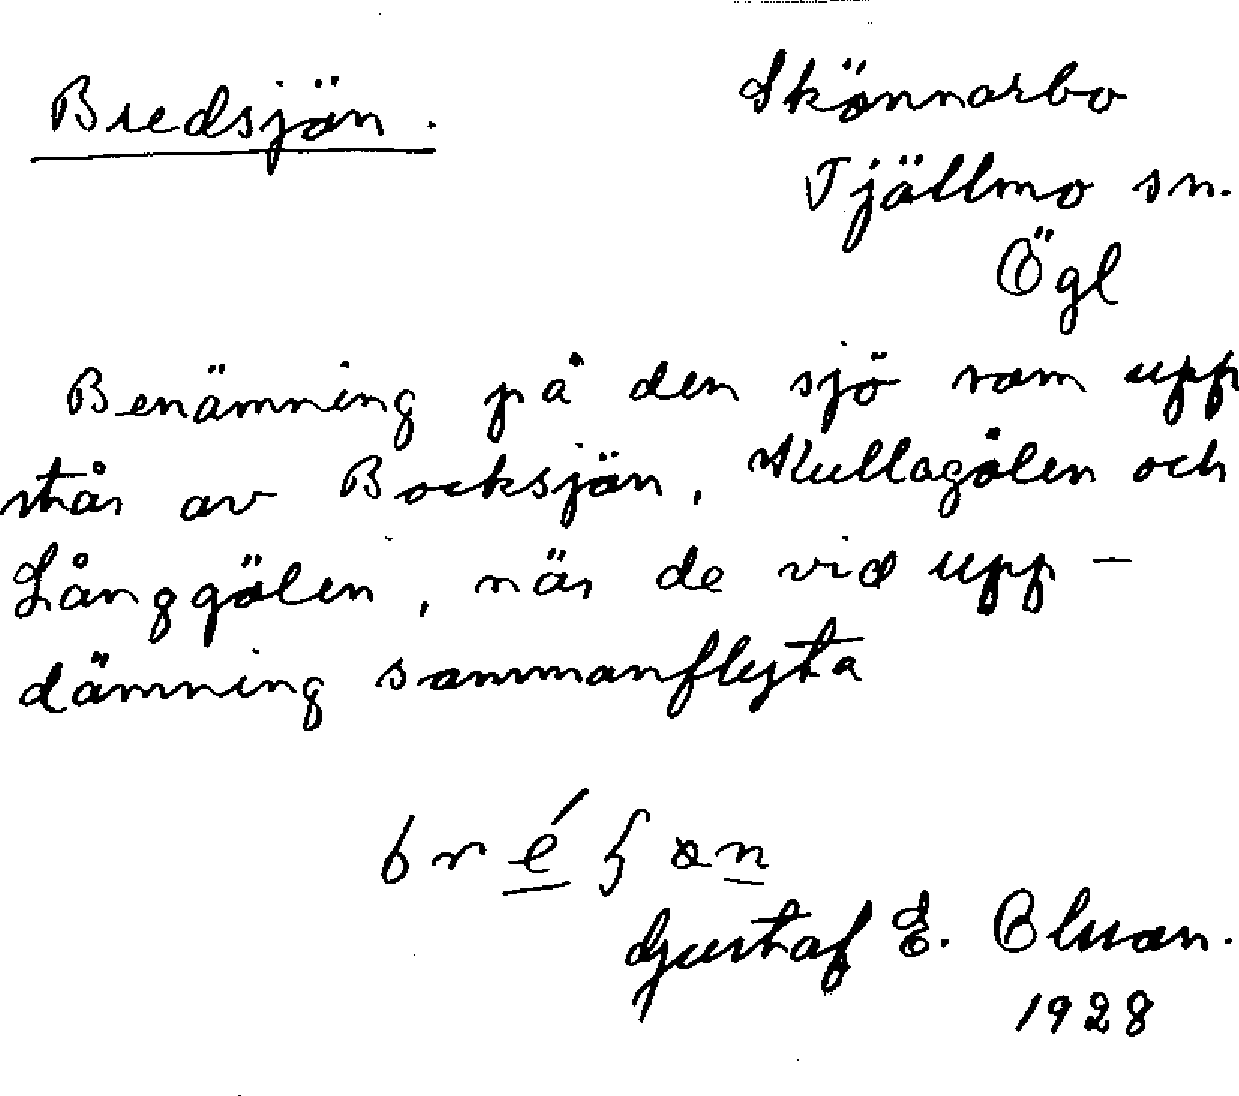 Bredsjön.
Skönnarbo
Tjällmo sn.
Ögl
Benämning på den sjö som upp
står av Bocksjön, Kullagölen och
Långgölen, när de vid upp-
dämning sammanflyta
Gustaf E.
1928